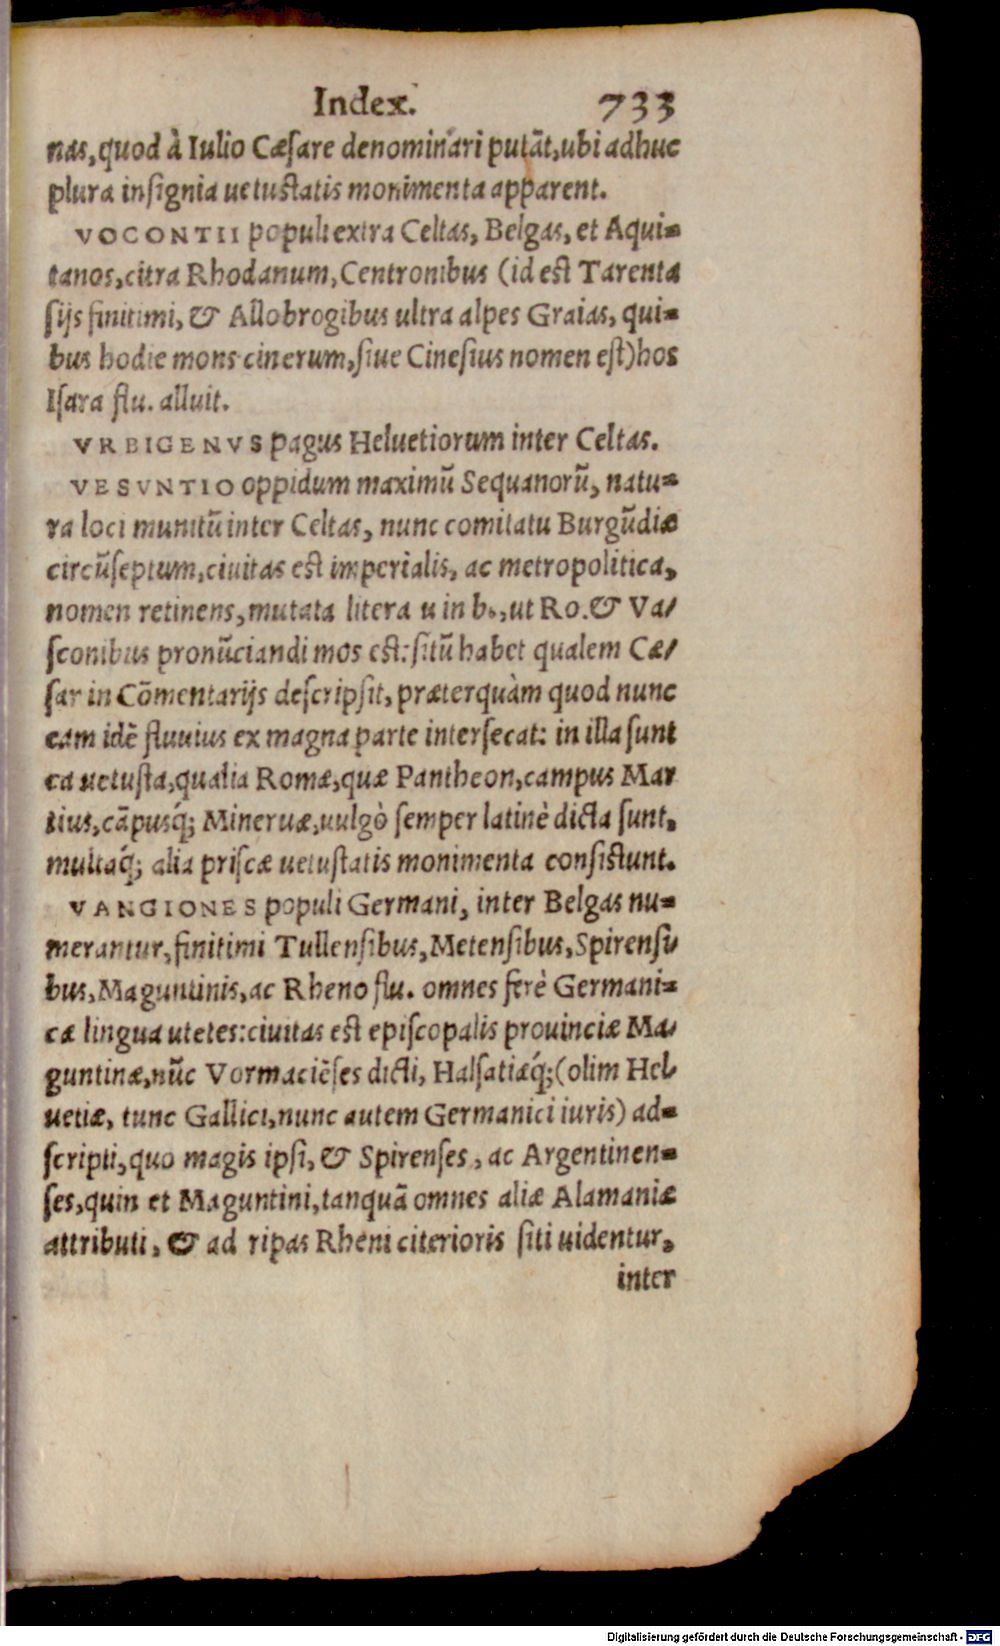 Index. 733
nas, quod à Iulio Cæſare denominári putãt, ubi adhuc
plura inſignia uetuſtatis monimenta apparent.
VOCONTII populi extra Celtas, Belgas, et Aqui-
tanos, citra Rhodanum, Centronibus (id eſt Tarenta
ſijs finitimi, & Allobrogibus ultra alpes Graias, qui-
bus hodie mons cinerum, ſiue Cineſius nomen eſt) hos
Iſara flu. alluit.
VRBIGENVS pagus Heluetiorum inter Celtas.
VESVNTIO oppidum maximũ Sequanorũ, natu-
ra loci munitũ inter Celtas, nunc comitatu Burgũdiæ
circũſeptum, ciuitas eſt imperialis, ac metropolitica,
nomen retinens, mutata litera u in b., ut Ro. & Va/
ſconibus pronũciandi mos eſt: ſitũ habet qualem Cæ/
ſar in Cõmentarijs deſcripſit, præterquàm quod nunc
eam idẽ fluuius ex magna parte interſecat: in illa ſunt
ea uetuſta, qualia Romæ, quæ Pantheon, campus Mar
tius, cãpusq́; Mineruæ, uulgò ſemper latinè dicta ſunt,
multaq́; alia priſcæ uetuſtatis monimenta conſiſtunt.
VANGIONES populi Germani, inter Belgas nu-
merantur, finitimi Tullenſibus, Metenſibus, Spirenſi/
bus, Maguntinis, ac Rheno flu. omnes ferè Germani-
cæ lingua utẽtes: ciuitas eſt epiſcopalis prouinciæ Ma/
guntinæ, nũc Vormaciẽſes dicti, Halſatiæq́; (olim Hel/
uetiæ, tunc Gallici, nunc autem Germanici iuris) ad-
ſcripti, quo magis ipſi, & Spirenſes, ac Argentinen-
ſes, quin et Maguntini, tanquã omnes aliæ Alamaniæ
attributi, & ad ripas Rheni citerioris ſiti uidentur,
inter
Digitalisierung gefördert durch die Deutsche Forschungsgemeinschaft - DFG